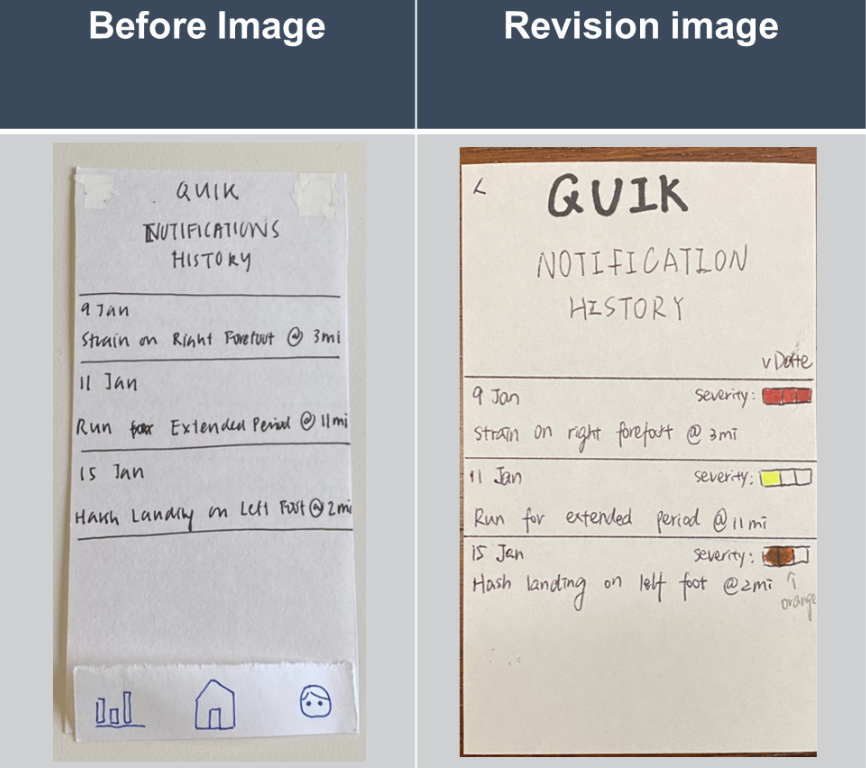 Before Image
Revision image
QUIK
NOTIFICATIONS
HISTORY
9 Jan
Strain on Right Forefoot @ 3mi
11 Jan
Run Extended Period @ 11mi
15 Jan
Hash Landing on Left Foot @ 2mi
<
QUIK
NOTIFICATION
HISTORY
v Date
9 Jan severity:
Strain on right forefoot @ 3mi
11 Jan severity:
Run for extended period @ 11mi
15 Jan severity:
Hash landing on left foot @2mi
orange